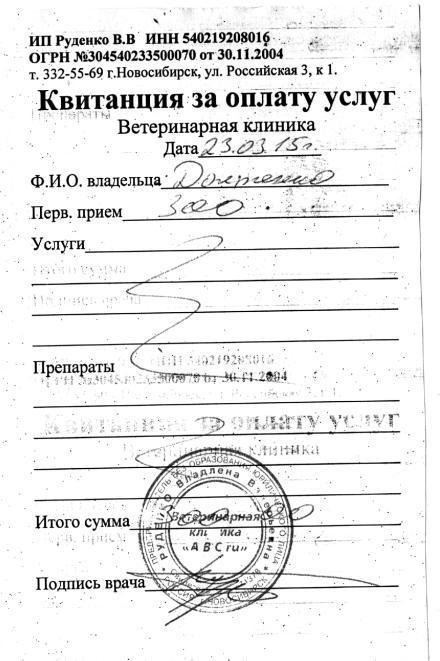 ИП Руденко В.В ИНН 540219208016
ОГРН №304540233500070 от 30.11.2004
т. 332-55-69 г.Новосибирск, ул. Российская 3, к 1.
Квитанция за оплату услуг
Ветеринарная клиника
Дата 23.03.15г.
Ф.И.О. владельца
Перв. прием 300
Услуги
Препараты
Итого сумма
Ветеринарная
клиника
«АВС ru»
Подпись врача